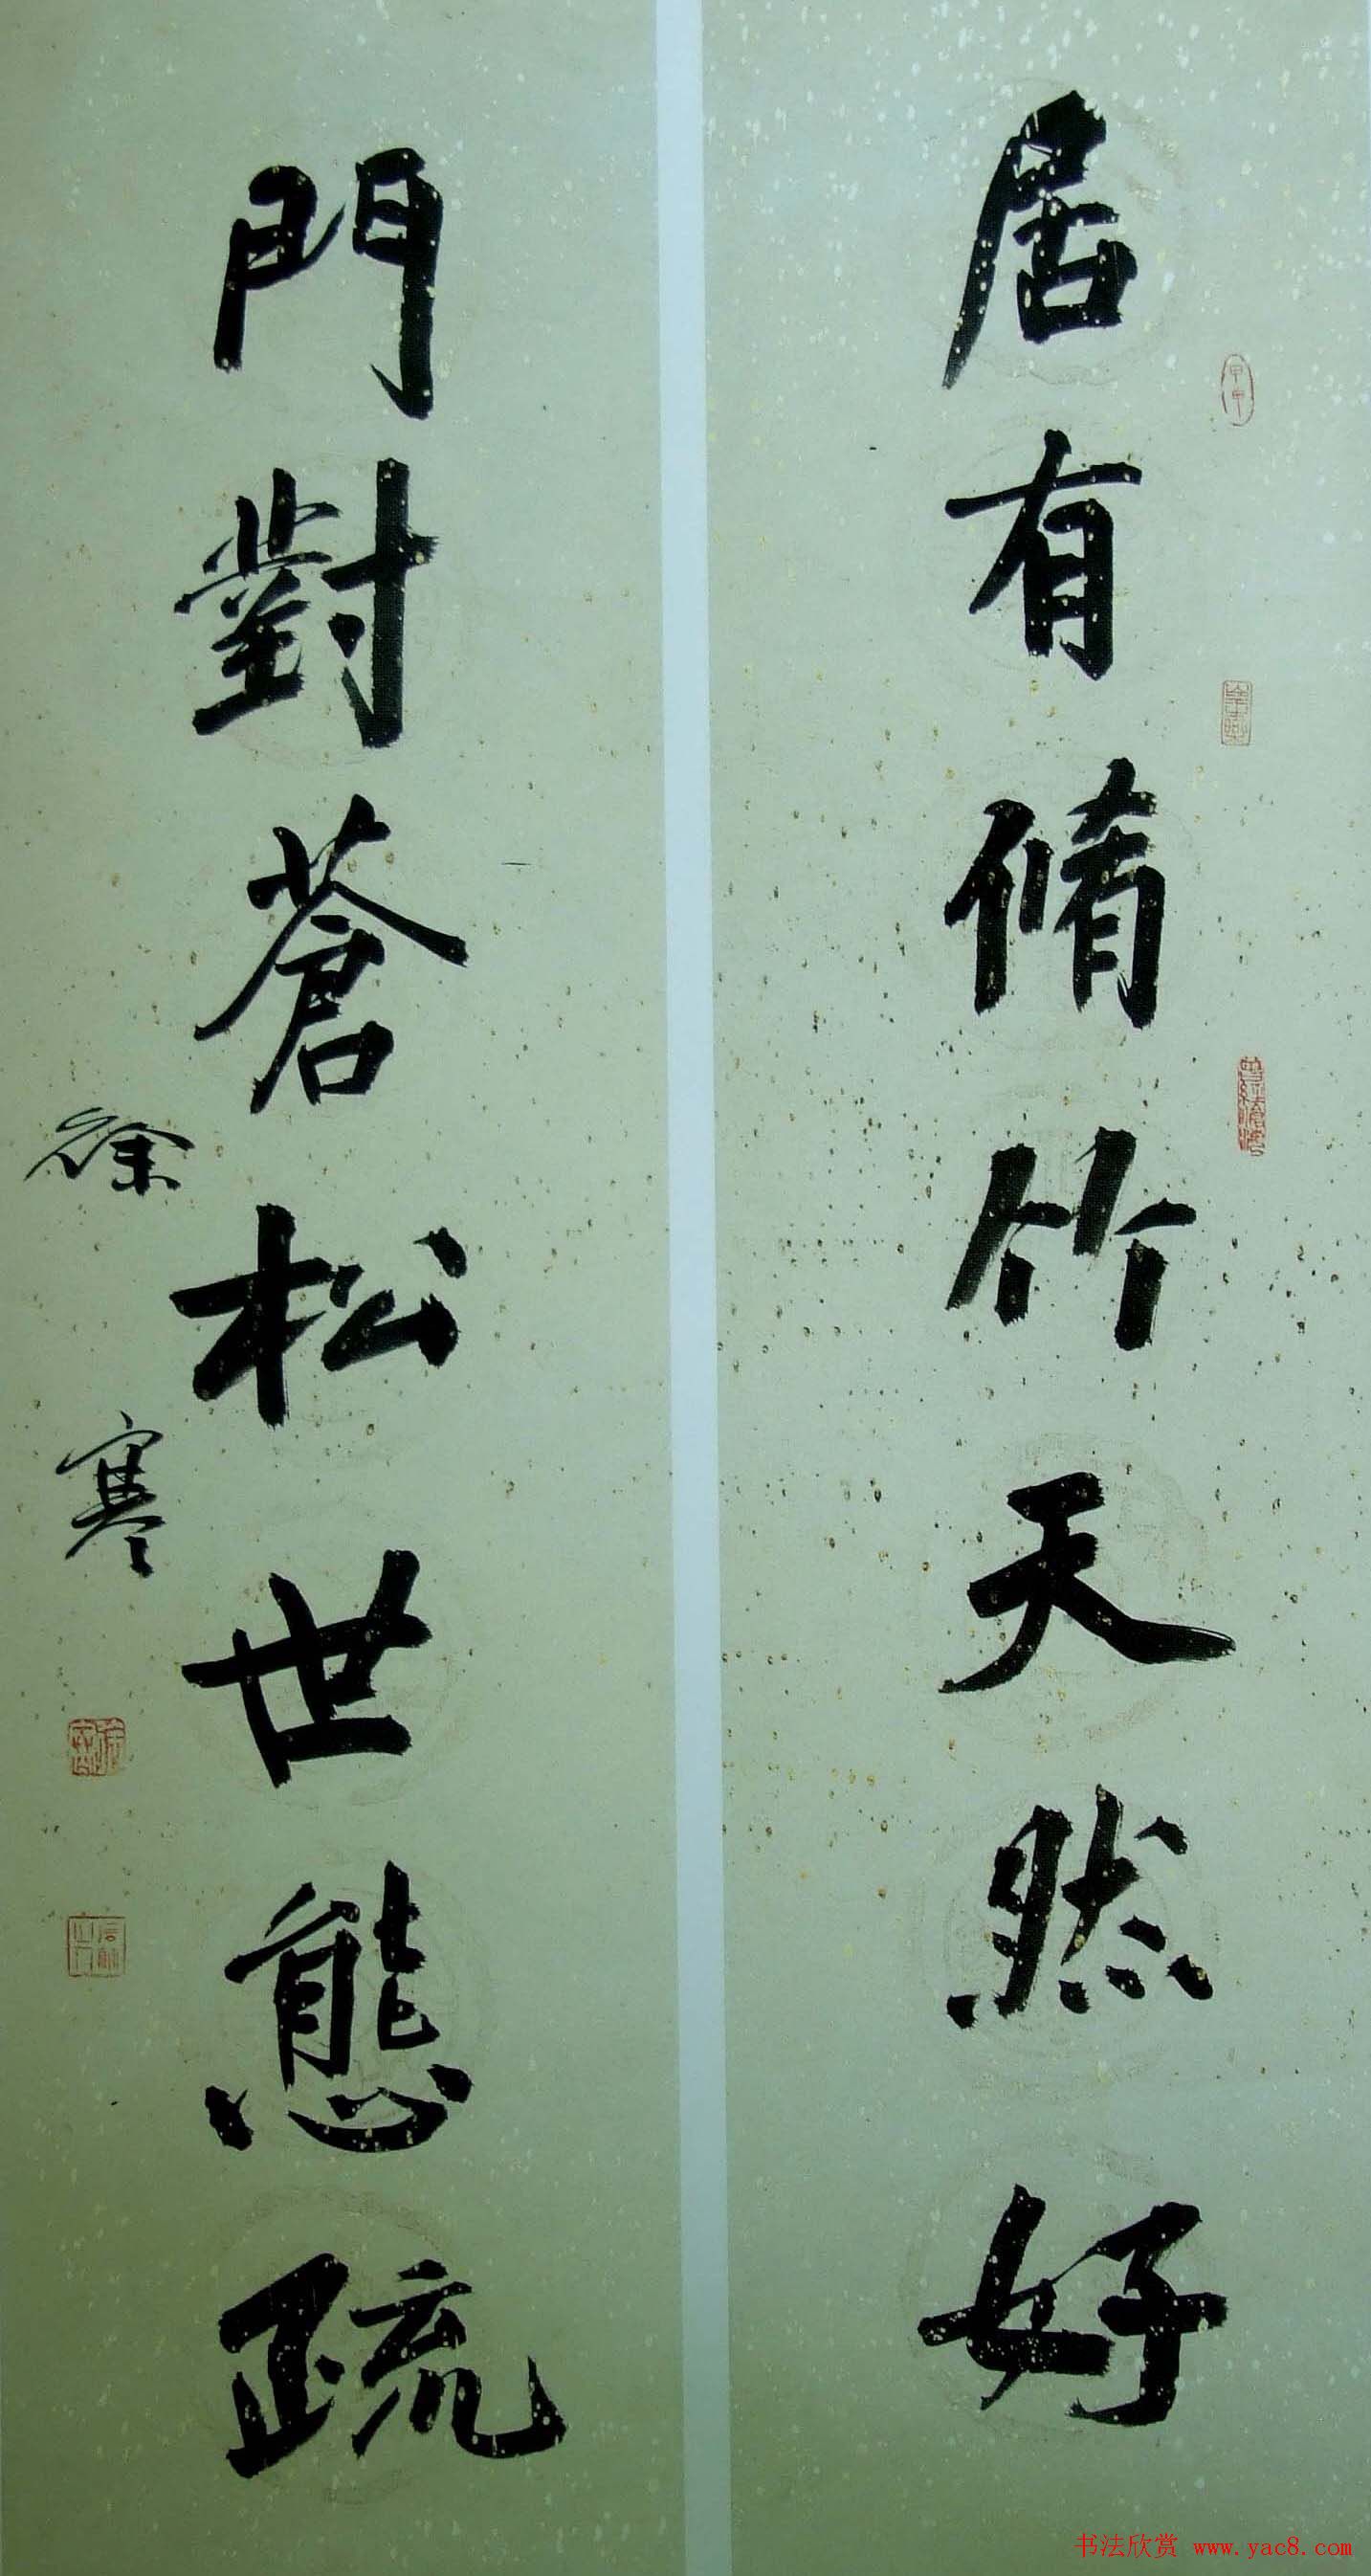 居有脩竹天然好
門對蒼松世態疏
徐寒
书法欣赏 www.yac8.com